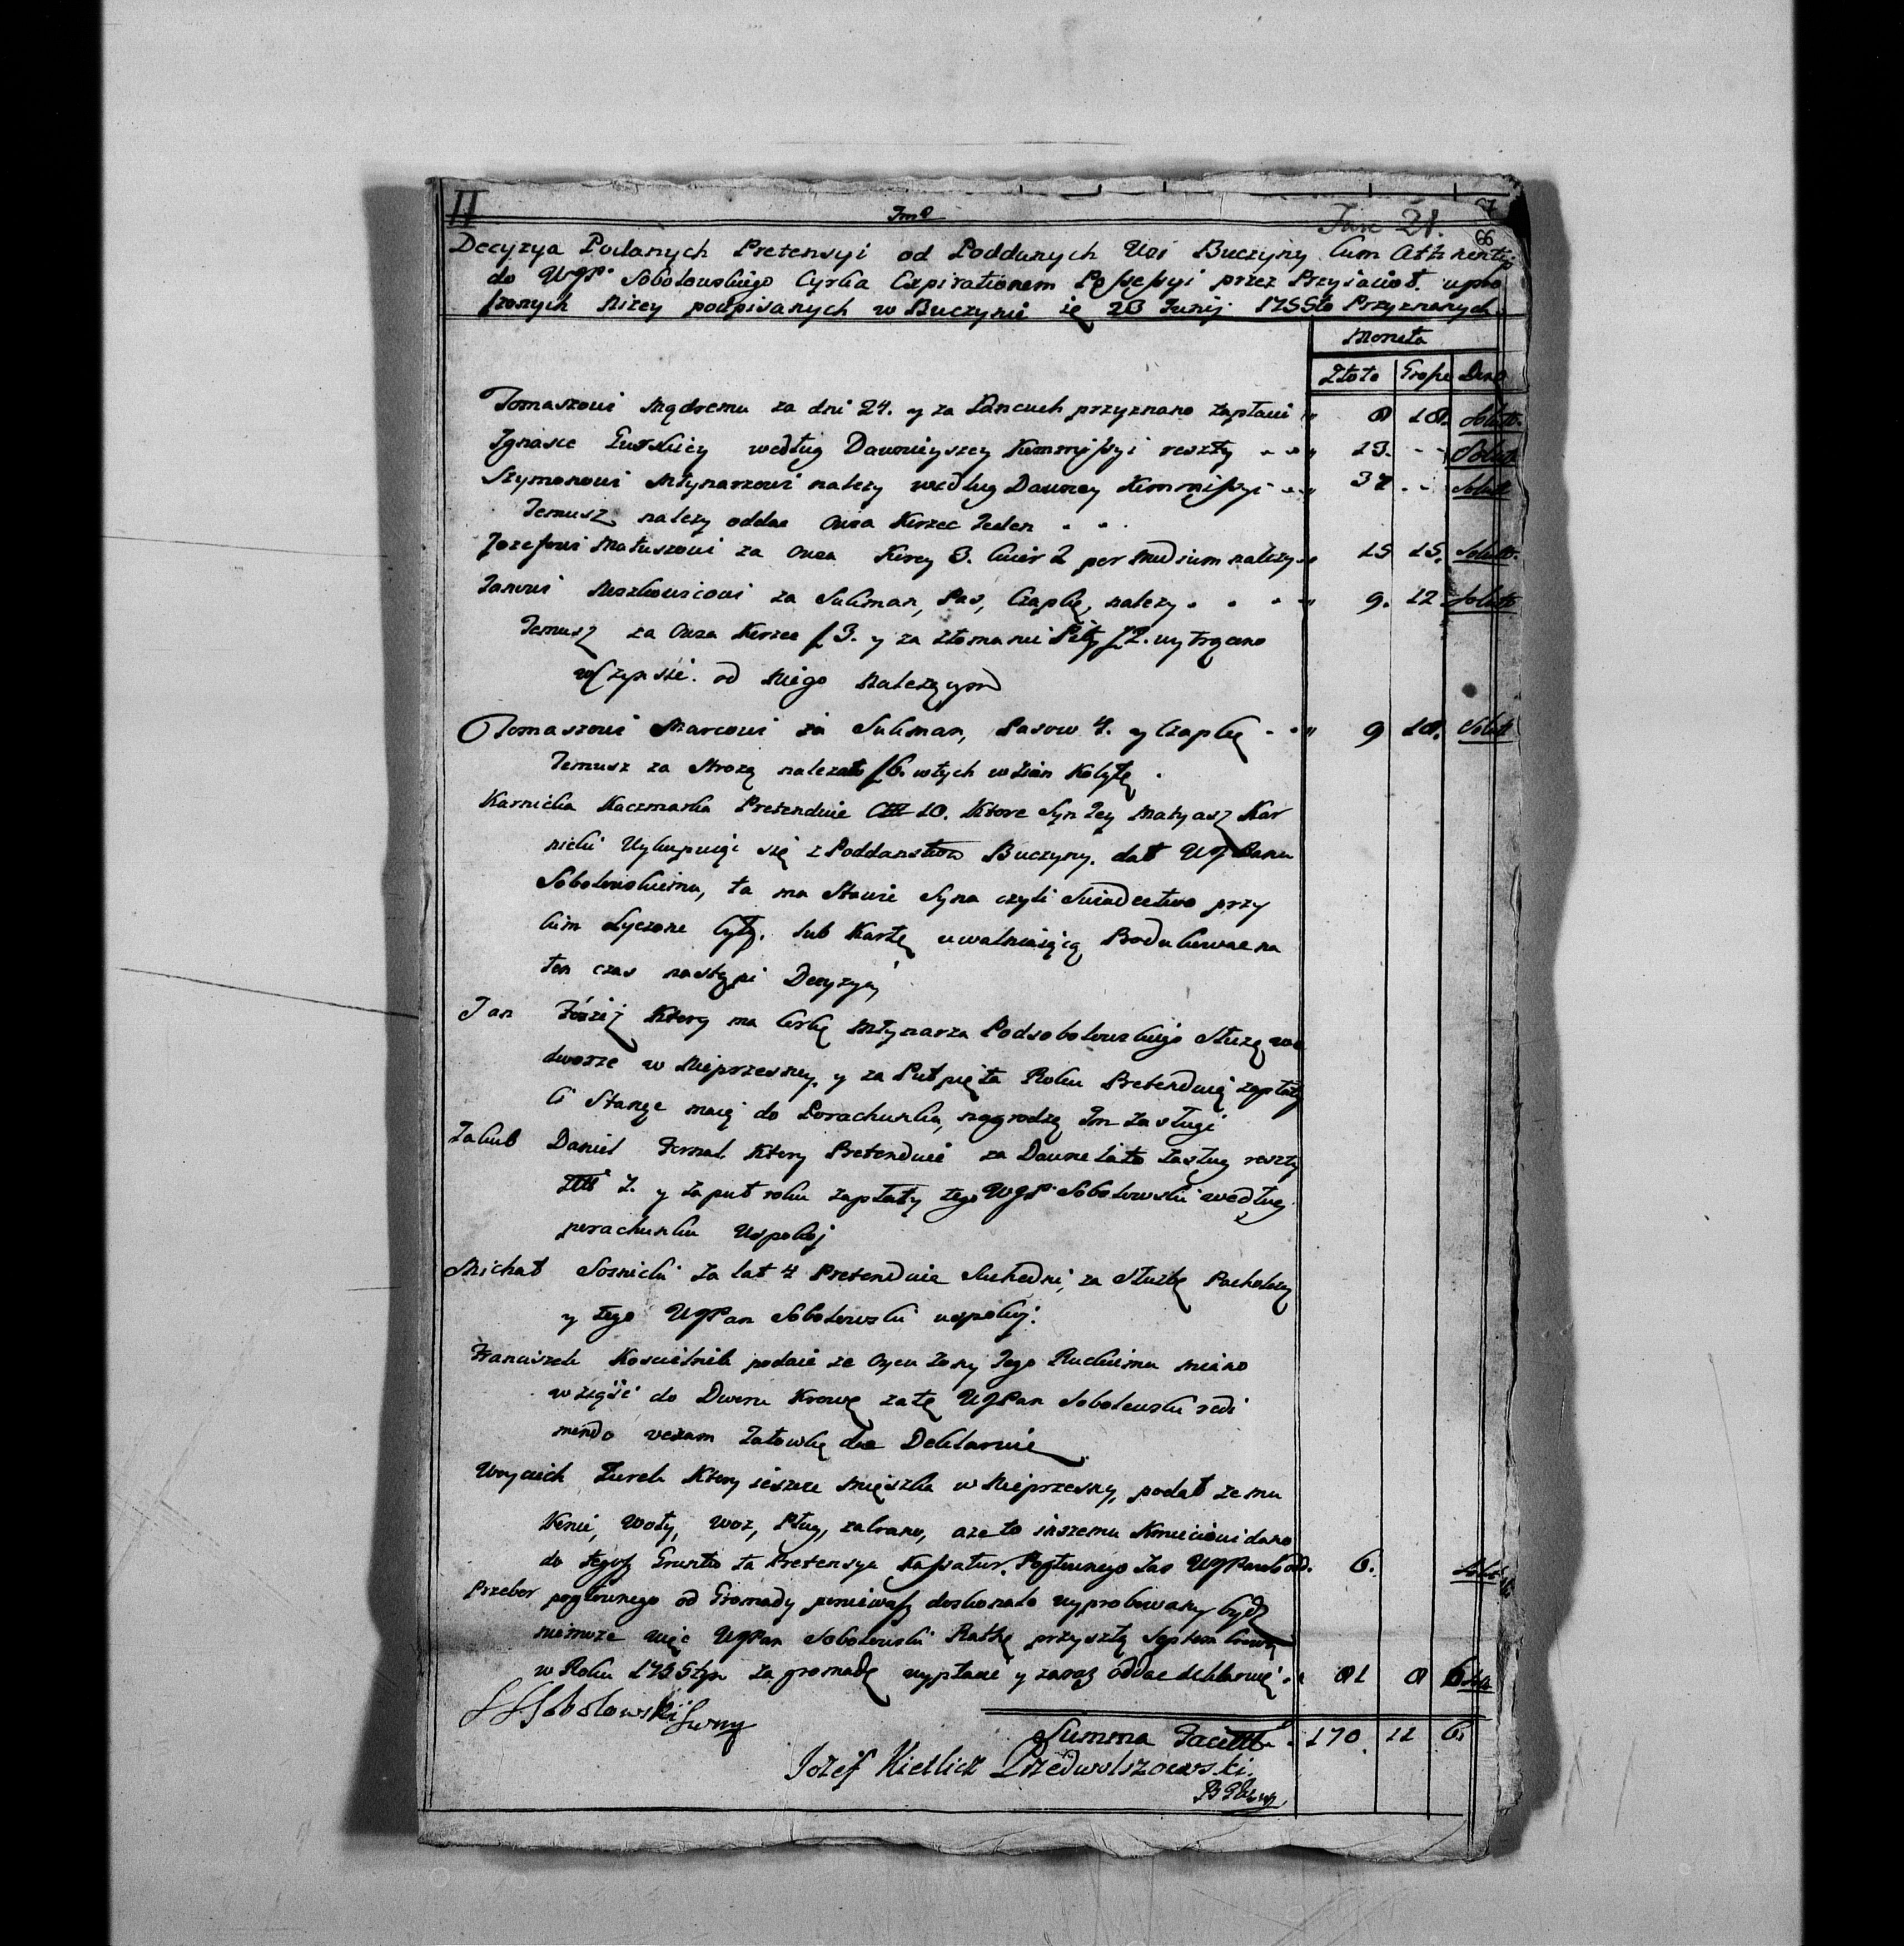 II
Imo
Junÿ 21.
67
66
Decyzya Podanych Pretensyi od Poddanych Wsi Buczyny Cum Attinentijs
do WJP Sobolewskiego Cyrka Expirationem Possessyi przez Przyiaciół. upro
szonych niżey podpisanych w Buczynie
Junij Przyznanych
Moneta
Złoto Grosze Den
Tomaszowi Mądremu za dni 24. y za Łańcuch przyznano zapłacić 8 18. Solut.
Ignacce według Dawnieyszey Kommissyi reszty 13. - - Solut
Szymonowi Młynarzowi należy według Dawney Kommissyi 37 - - Solut
Temusz należy oddac Owsa Korzec Jeden
Jozefowi Matuszowi za Owsa Korcy 3. Cwier 2 per medium należy 15 15. Solut.
Janowi Moszkowicowi za Sukman, Pas, Czapkę, należy 9. 12 Solut
Temusz za Owsa Korzec f 3. y za złomanie Piły f 2. wytrącono
w Czynszie. od Niego Należącym
Tomaszowi Marcowi za Sukman, Pasow 4. y Czapkę 9 18. Solut
Temusz za Strożą należało f 6. wtych wzion Kobyłę
Karnicka Kaczmarka Pretenduie 10. Ktore Syn Jey Matyasz Kar
nicki Wykupuiąc się z Poddanstwa Buczyny. dał WJPanu
Sobolewskiemu, ta ma Stawić Syna czyli Swiadectwo przy
kim Lyczone były. lub Kartę uwalniaiącą Produkować na
ten czas nastąpi Decyzya
Jan Ktory ma Corkę Młynarza Podsobolewskiego Służą we
dworze w Nieprzesney, y za Puł pięta Roku Pretenduią zapłaty
Ci Stanąc maią do Porachunku, nagrodzą Im zasługi
Jakub Daniel Ktory Pretenduie za Dawne lata Zasług reszty
7. y za puł roku zapłaty tego WJP Sobolewski według
porachunku Uspokoj
Michał Sosnicki za lat 4 Pretenduie Suchedni, za Służbę Pacholczą
y tego WJPan Sobolewski uspokoj.
Franciszek Koscielnik podaie ze Oycu Zony Jego Ruckiemu miano
wziąść do Dworu Krowę zatę WJPan Sobolewski redi
mendo vexam Jałowkę dac Deklaruie
Woyciech Zurek Ktory ieszcze mięszka w Nieprzesny, podał ze mu
Konie, Woły, woz, Pług, zabrano, aże to inszemu Kmieciowi dano
do tegoż Gruntu ta Pretensya Kassatur. Pogłownego Zas WJPan odd. 6. Solut
Przebor pogłownego od Gromady ponieważ doskonale wyprobowany bydz
niemoze więc WJPan Sobolewski Ratkę przyszłą Septembrową
w Roku za gromadę wypłacić y zaraz oddac deklaruie 81 8 6 Solut
Sobolewski
Summa Facit 170 11 6.
Jozef Kietlicz Przedwolszowski